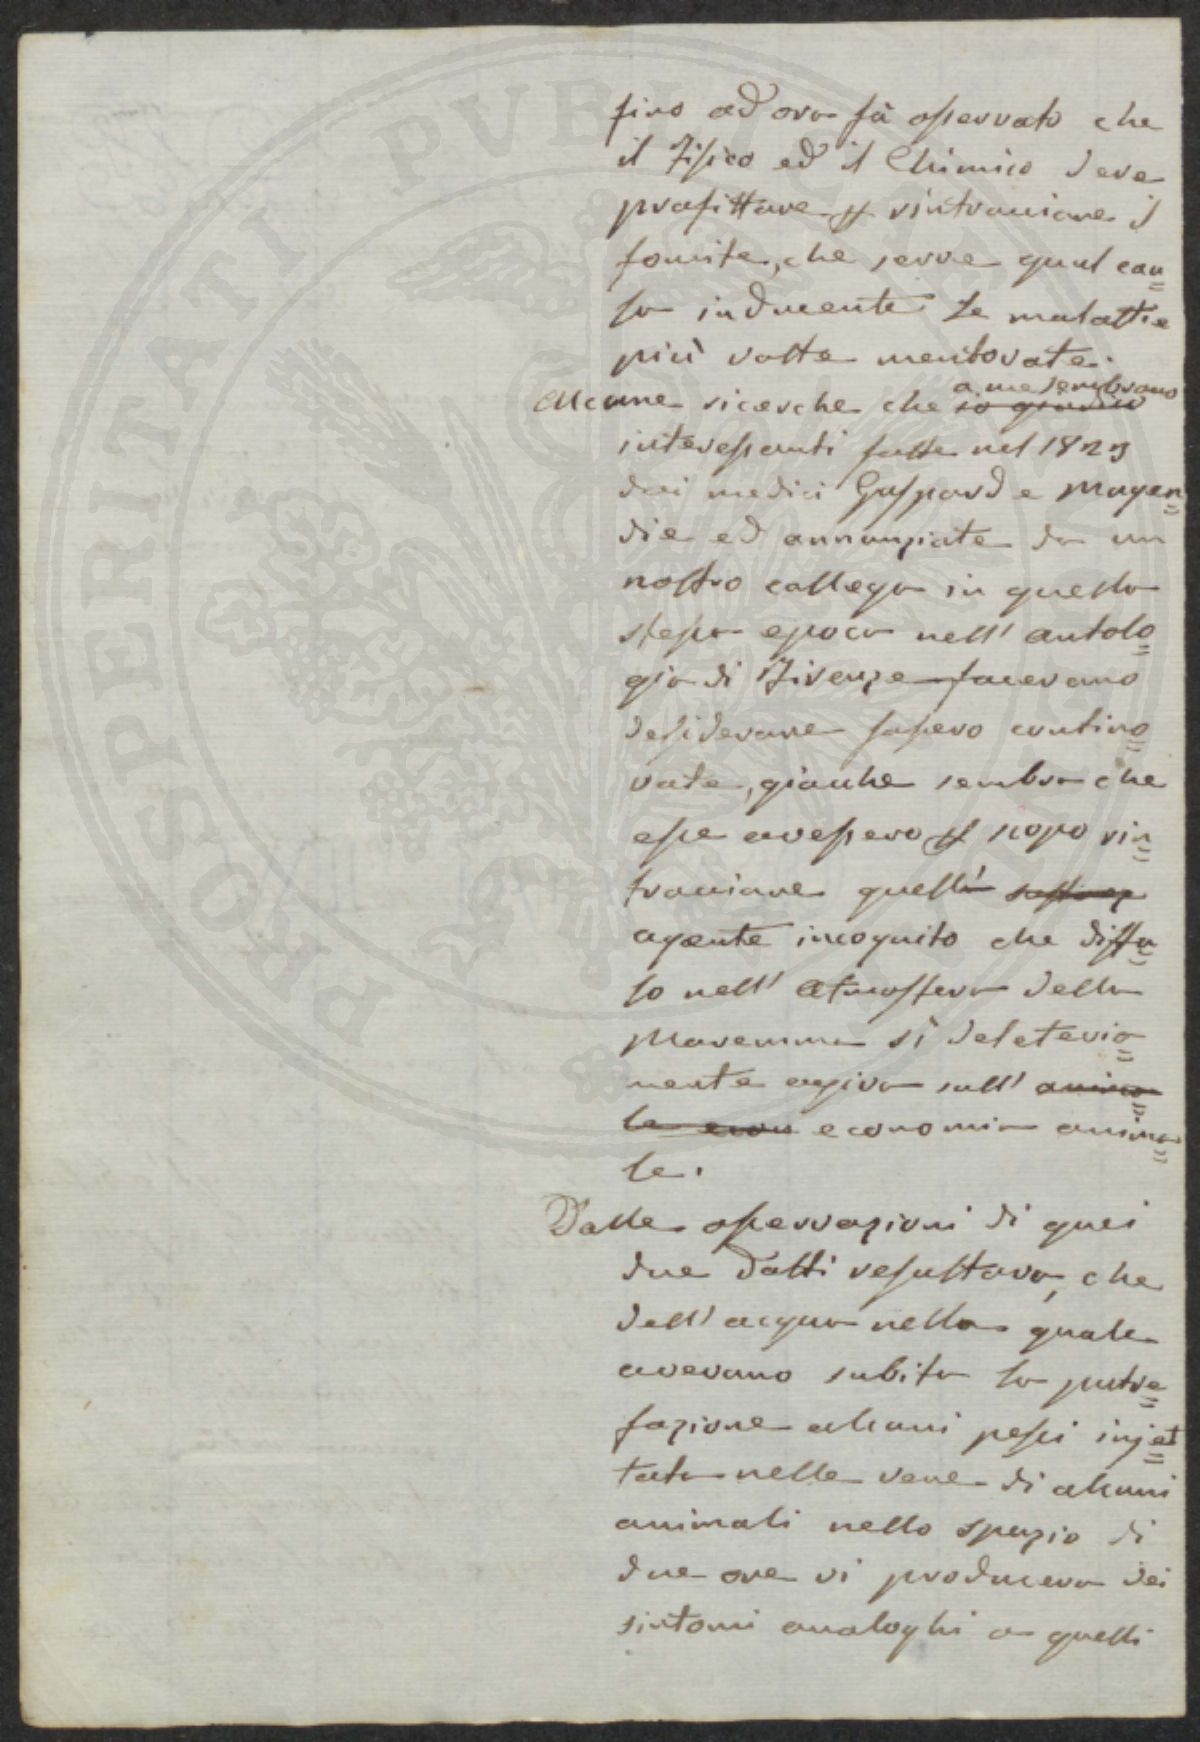 fino ad ora fà osservato che
il Fisico ed il Chimico deve
profittare p rintracciare il
fomite, che serve qual cau=
sa inducente le malattie
più volte mentovate.
Alcune ricerche che io giudico a me sembrano
interessanti fatte nel 1823
dai medici Gaspard e Magen=
die ed annunziate da un
nostro collega in questa
stessa epoca nell' antolo=
gia di Firenze facevano
desiderare fossero contino=
vate, giacche sembra che
esse avessero p scopo rin=
tracciare quell'
agente incognito che diffu=
so nell' Atmosfera della
Maremma sì deleteria=
mente agiva sull' anima=
le econ economia anima=
le.
Dalle osservazioni di quei
due Dotti resultava, che
dell' acqua nella quale
avevano subita la putre=
fazione alcuni pesci injet=
tata nelle vene di alcuni
animali nello spazio di
due ore vi produceva dei
sintomi analoghi a quelli
PROSPERITATI PVBLICAE